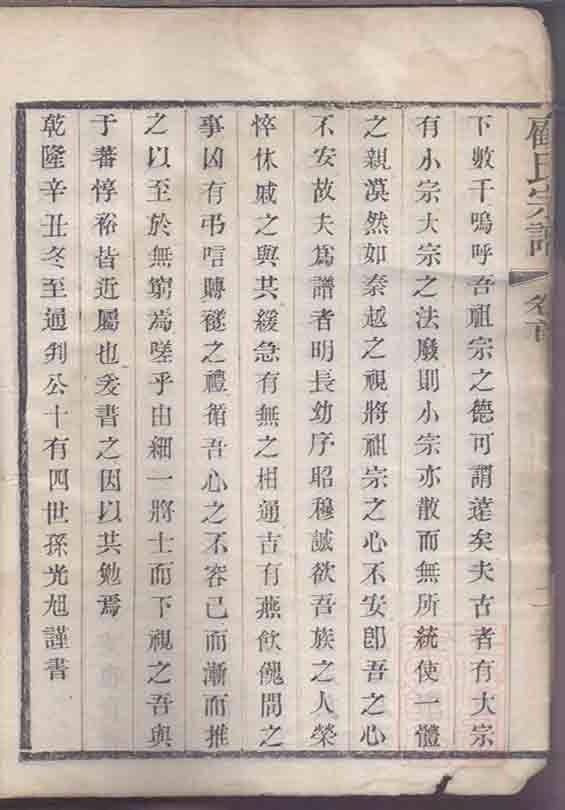 顧氏宗譜 卷首
下數千嗚呼吾祖宗之德可謂遠矣夫古者有大宗
有小宗大宗之法廢則小宗亦散而無所統使一體
之親漠然如秦越之視將祖宗之心不安卽吾之心
不安故夫爲譜者明長幼序昭穆誠欲吾族之人榮
悴休戚之與共緩急有無之相通吉有燕飮餽問之
事凶有弔唁賻襚之禮循吾心之不容已而漸而推
之以至於無窮焉嗟乎由細一將士而下視之吾與
于蕃惇裕皆近屬也爰書之因以共勉焉
乾隆辛丑冬至通判公十有四世孫光旭謹書